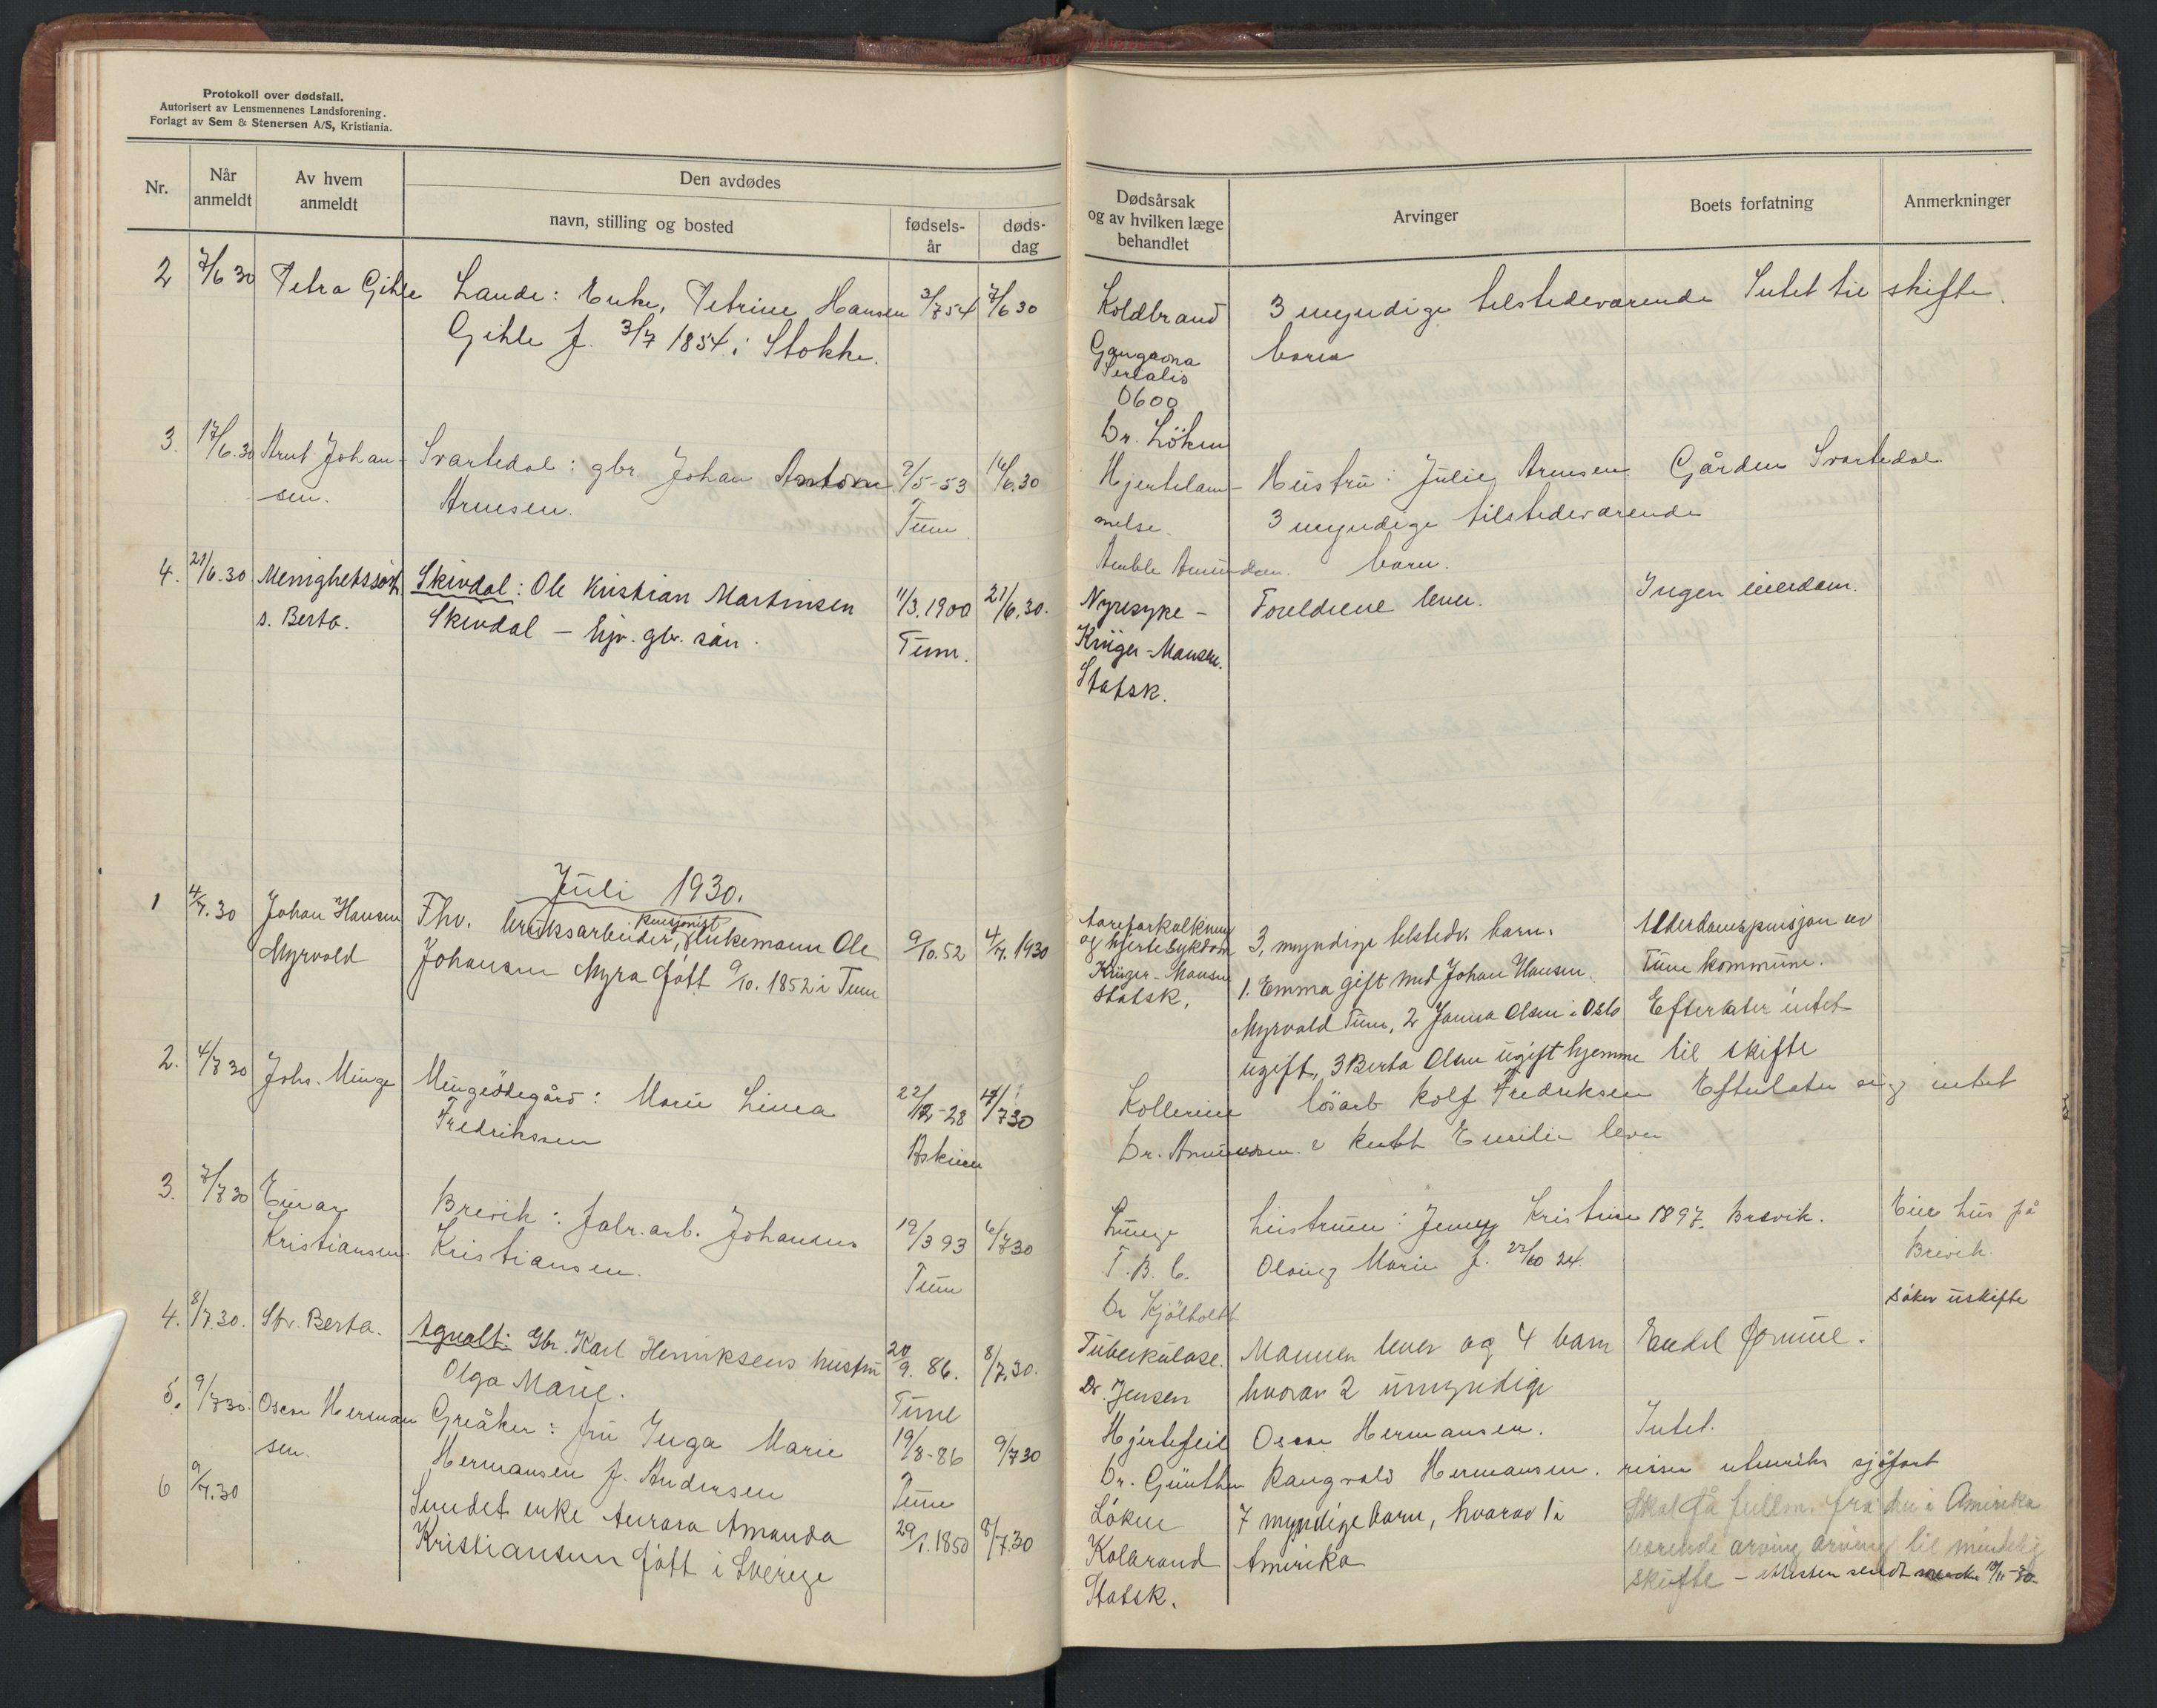 Protokoll over dødsfall.
Autorisert av Lensmennenes Landsforening.
Forlagt av Sem & Stenersen A/S, Kristiania.
Nr.
Når anmeldt
Av hvem anmeldt
Den avdødes
navn, stilling og bosted
fødsels-år
døds-dag
Dødsårsak og av hvilken læge behandlet
Arvinger
Boets forfatning
Anmerkninger
2 7/6 30 Petra Gihle Lande: Enke, Petrine Hansen 3/7 54 7/6 30
Gihle f. 3/7 1854 i Stokke.
Koldbrand 3 myndige tilstedeværende Intet til skifte.
Gangræna barn
Senialis
Dr. Löken
3. 17/6.30 Arnt Johan- Svartedal: gbr. Johan Anton 9/5-53 16/6.30
sen. Arnesen. Tune
Hjertelam- Hustru: Julie Arnesen Gården Svartedal
melse. 3 myndige tilstedeværende
barn.
4. 21/6.30 Menighetssøst. Skivdal: Ole Kristian Martinsen 11/3.1900 21/6.30.
s. Berta. Skivdal - hjv. gbr. sön. Tune.
Nyresyke - Foreldrene lever. Ingen eiendom.
Krüger-Hansen.
Statsk.
Juli 1930.
1 4/7.30 Johan Hansen Fhv. bruksarbeider, pensjonist, enkemann Ole 9/10.52 4/7.1930
Myrvold Johansen Myra född 9/10.1852 i Tune
Aareforkalkning 3, myndige tilstedv. barn. Alderdomspensjon av
og hjertesykdom
Krüger-Hansen 1. Emma gift med Johan Hansen Tune kommune.
Statsk. Myrvold Tune, 2 Janna Olsen i Oslo Efterlater intet
ugift, 3 Berta Olsen ugift hjemme til skifte
2. 4/7 30 Johs. Minge Mingeödegård: Marie Linea 22/12-28 4/7 30
Fredriksen Askim
Kollerine lösarb Rolf Fredriksen Efterlater sig intet
Dr. Amundsen. Emilie lever
3. 7/7 30 Einar Brevik: fabr.arb. Johannes 19/3 93 6/7 30
Kristiansen. Kristiansen. Tune
Lunge Hustruen: Jenny Kristine 1897. Brevik. Eier hus på
T.B.C. Marie f. 22/10 24. Brevik.
Dr Kjölholdt söker uskifte
4. 8/7.30. St. Berta. Agnalt: Gbr. Karl Henriksens hustru 20/9.86. 8/7.30.
Olga Marie. Tune
Tuberkulose. Mannen lever og 4 barn Endel formue.
Dr. Jensen hvorav 2 umyndige
5. 9/7 30. Oscar Herman Greåker: fru Inga Marie 19/8-86 9/7 30
sen. Hermansen f. Andersen Tune
Hjertefeil Oscar Hermansen. Intet.
Dr. Günther Rangvald Hermansen. reiser utenriks sjöfart
6 9/7.30 Sundet enke Aurora Amanda 29/1.1850 8/7.30
Kristiansen född i Sverige
Löken 7 myndige barn, hvorav 1 i Skal få fullm. fra den i Amerika
Kolbrand Amerika værende arving arving til mindelig
Statsk. skifte - Attesten sendt 10/11-30